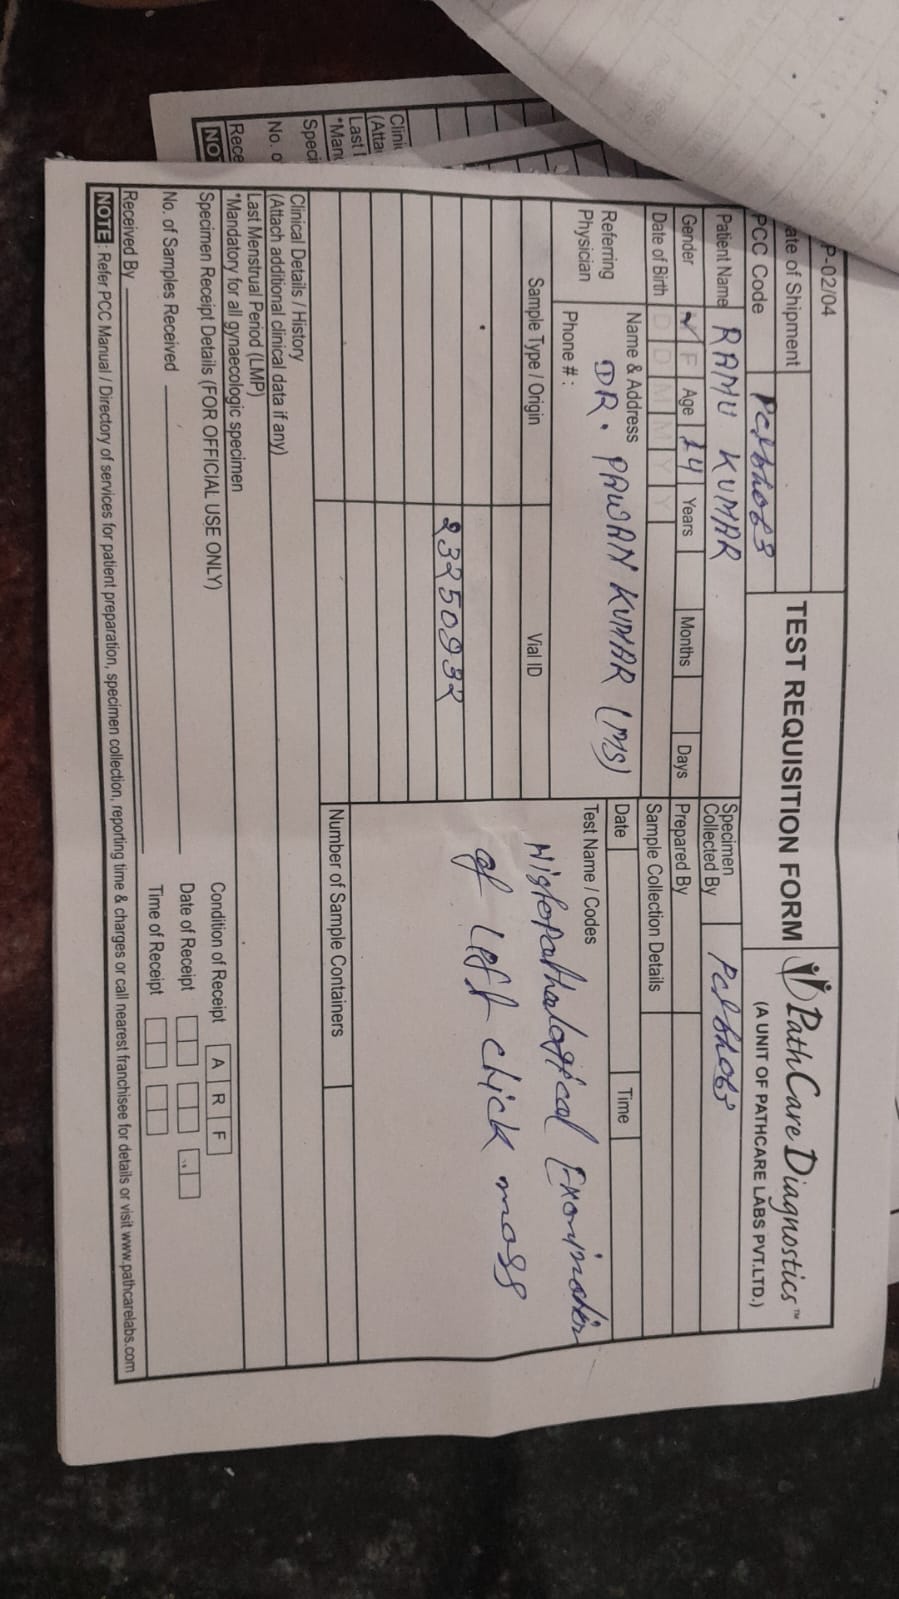 P-02/04
ate of Shipment
PCC Code
TEST REQUISITION FORM
PathCare Diagnostics™
(A UNIT OF PATHCARE LABS PVT.LTD.)
Patient Name RAMU KUMAR
Specimen Collected By
Gender ✓ F Age 14 Years Months Days
Prepared By
Date of Birth D D M M Y Y
Sample Collection Details
Referring Physician
Name & Address
DR. PAWAN KUMAR (MS)
Phone # :
Date Time
Test Name / Codes
Histopathological Exominotion
of left chick moss
Sample Type / Origin Vial ID
23250932
Number of Sample Containers
Clinical Details / History
(Attach additional clinical data if any)
Last Menstrual Period (LMP)
*Mandatory for all gynaecologic specimen
Specimen Receipt Details (FOR OFFICIAL USE ONLY)
Condition of Receipt A R F
No. of Samples Received
Date of Receipt
Time of Receipt
Received By
NOTE : Refer PCC Manual / Directory of services for patient preparation, specimen collection, reporting time & charges or call nearest franchisee for details or visit www.pathcarelabs.com
Clini
(Atta
Last
*Man
Speci
No. o
Rece
NO